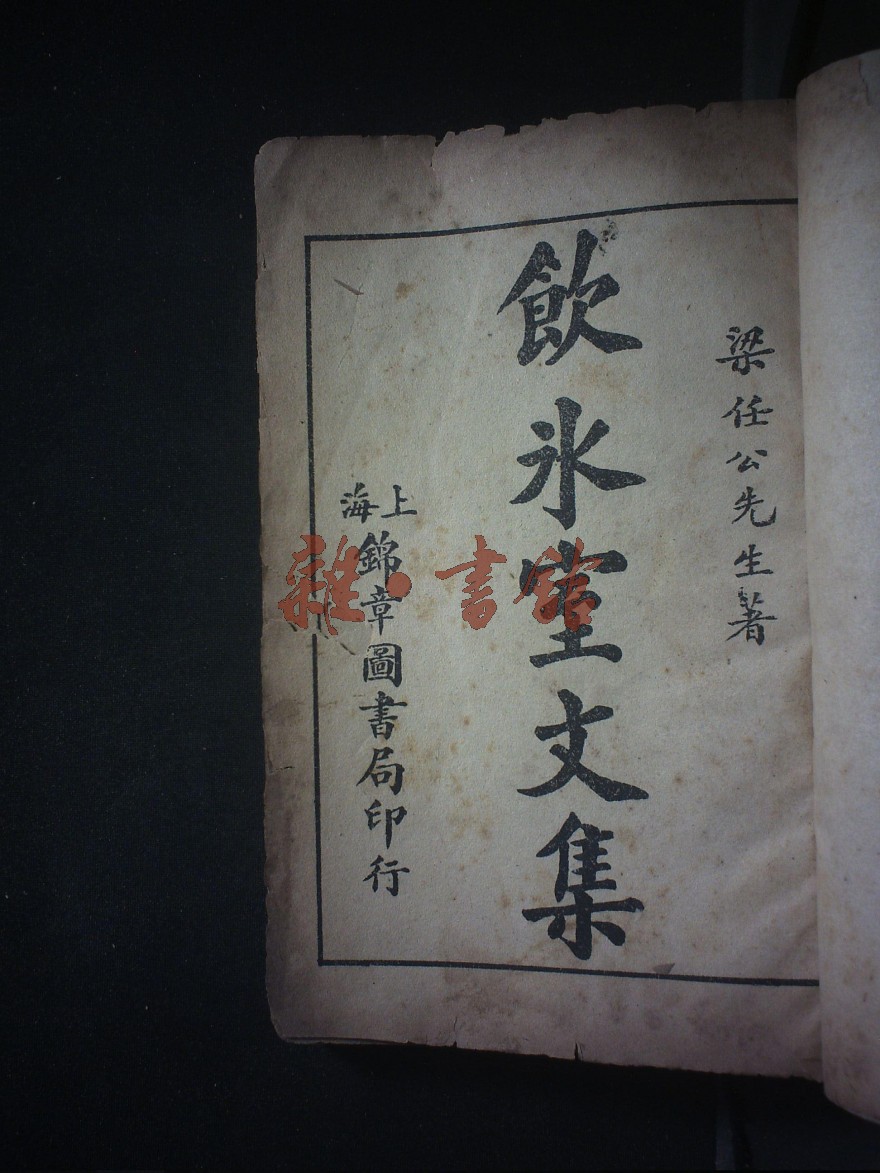 梁任公先生著
飲氷室文集
上海
錦章圖書局印行
雜·書館